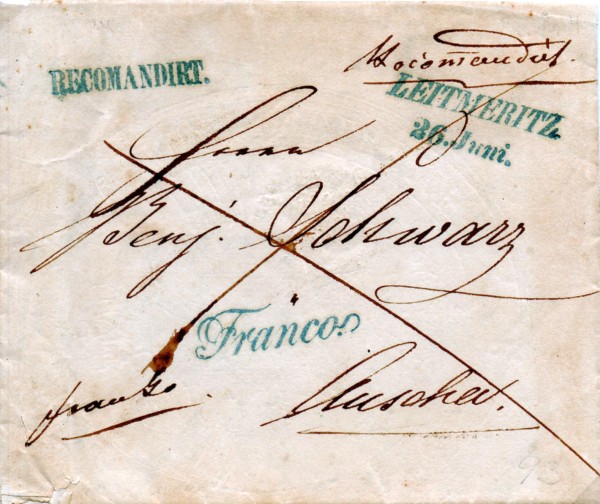 Recomandirt.
RECOMANDIRT.
LEITMERITZ.
26. Juni.
Herrn
Benj. Schwarz
Franco.
franko
Auscha.
93